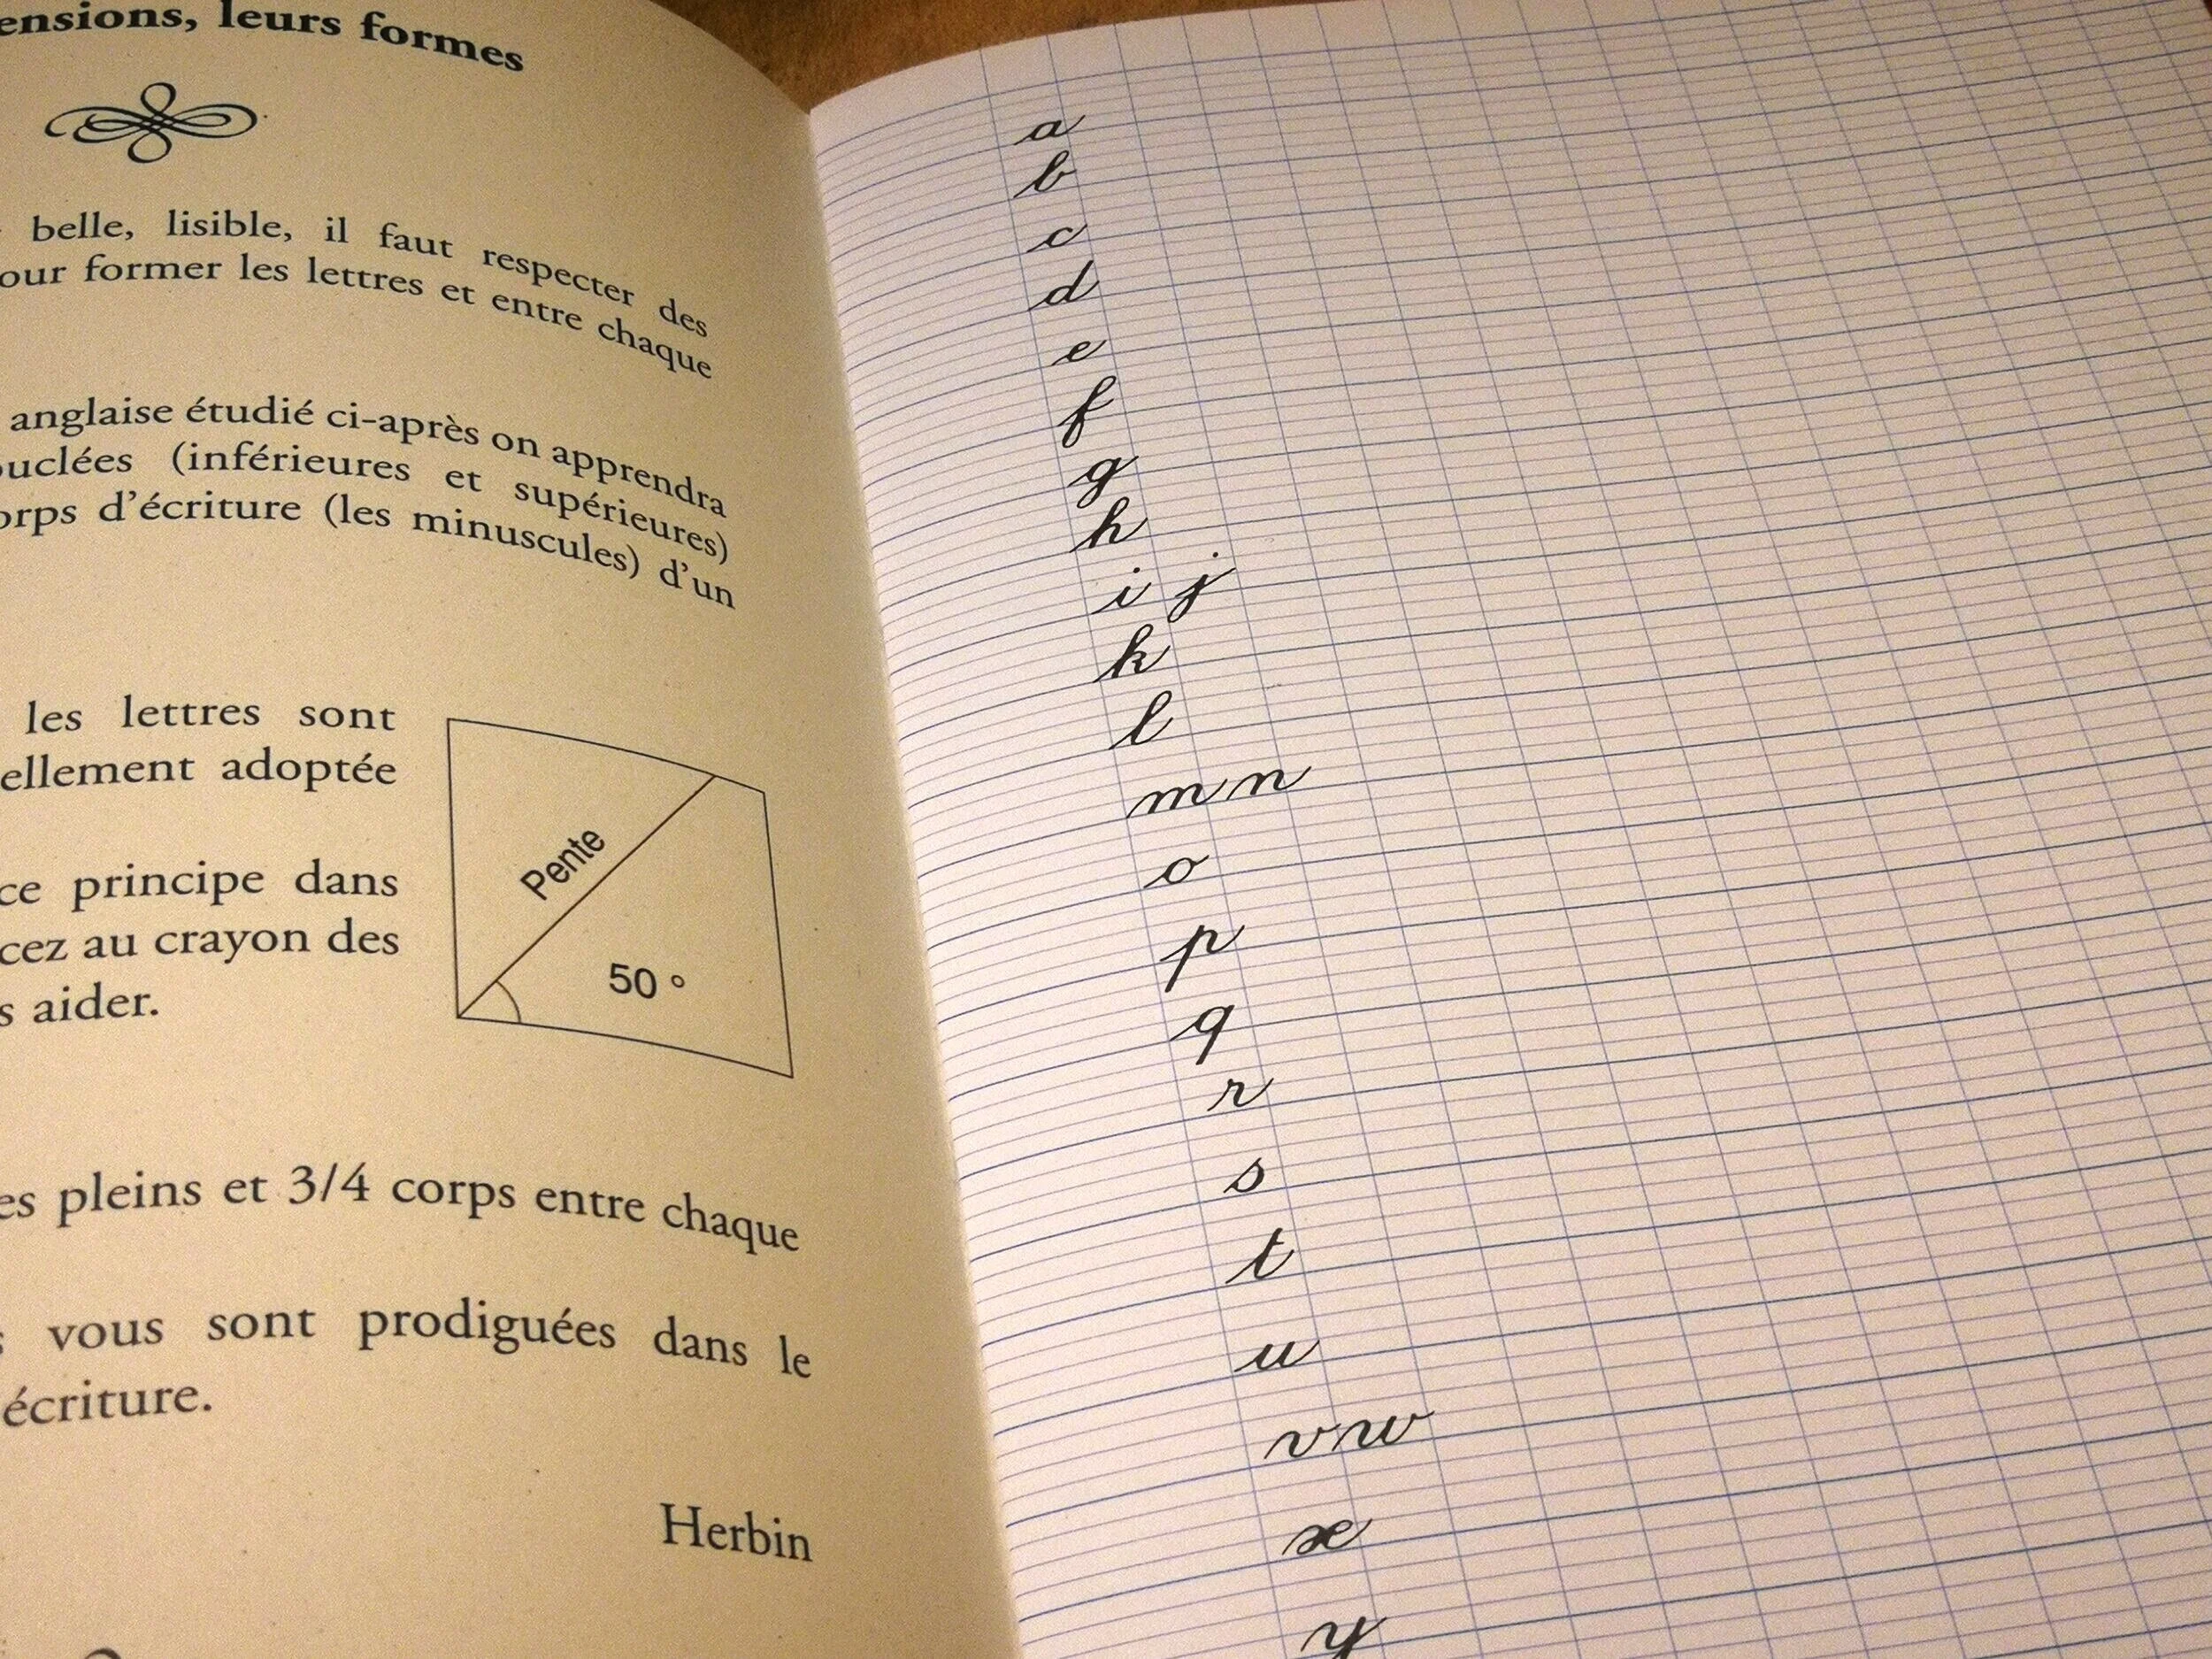 ensions, leurs formes
belle, lisible, il faut respecter des
our former les lettres et entre chaque
anglaise étudié ci-après on apprendra
ouclées (inférieures et supérieures)
orps d'écriture (les minuscules) d'un
les lettres sont
ellement adoptée
ce principe dans
cez au crayon des
s aider.
Pente
50 °
es pleins et 3/4 corps entre chaque
s vous sont prodiguées dans le
écriture.
Herbin
a
b
c
d
e
f
g
h
i j
k
l
m n
o
p
q
r
s
t
u
v w
x
y